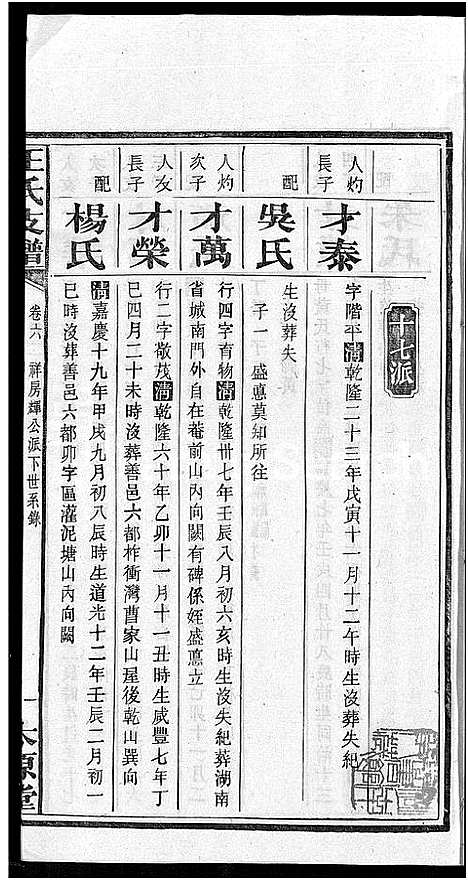 十七派
人灼
長子
才泰
字階平清乾隆二十三年戊寅十一月十二午時生沒葬失紀
配
吳氏
生沒葬失
子一 盛惪莫知所往
人灼
次子
才萬
行四字育物清乾隆卅七年壬辰八月初六亥時生沒失紀葬湖南
省城南門外自在菴前山內向闕有碑係姪盛惪立
人友
長子
才榮
行二字敬茂清乾隆六十年乙卯十一月十一丑時生咸豐七年丁
巳四月二十未時沒葬善邑六都柞衝灣曹家山屋後乾山巽向
配
楊氏
清嘉慶十九年甲戌九月初八辰時生道光十二年壬辰二月初一
巳時沒葬善邑六都卯字區灌泥塘山內向闕
王氏支譜
卷六 祥房輝公派下世系錄
一